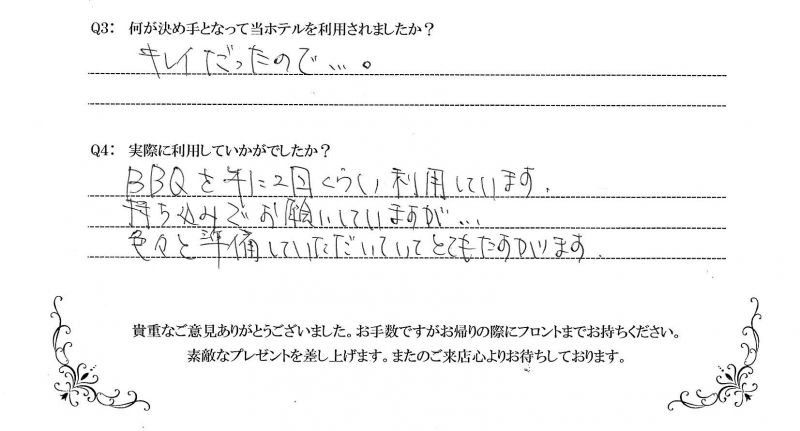 Q3: 何が決め手となって当ホテルを利用されましたか？
キレイだったので…。
Q4: 実際に利用していかがでしたか？
BBQを年に2回くらい利用しています。
持ち込みでお願いしていますが…
色々と準備していただいていてとてもたすかります。
貴重なご意見ありがとうございました。お手数ですがお帰りの際にフロントまでお持ちください。
素敵なプレゼントを差し上げます。またのご来店心よりお待ちしております。